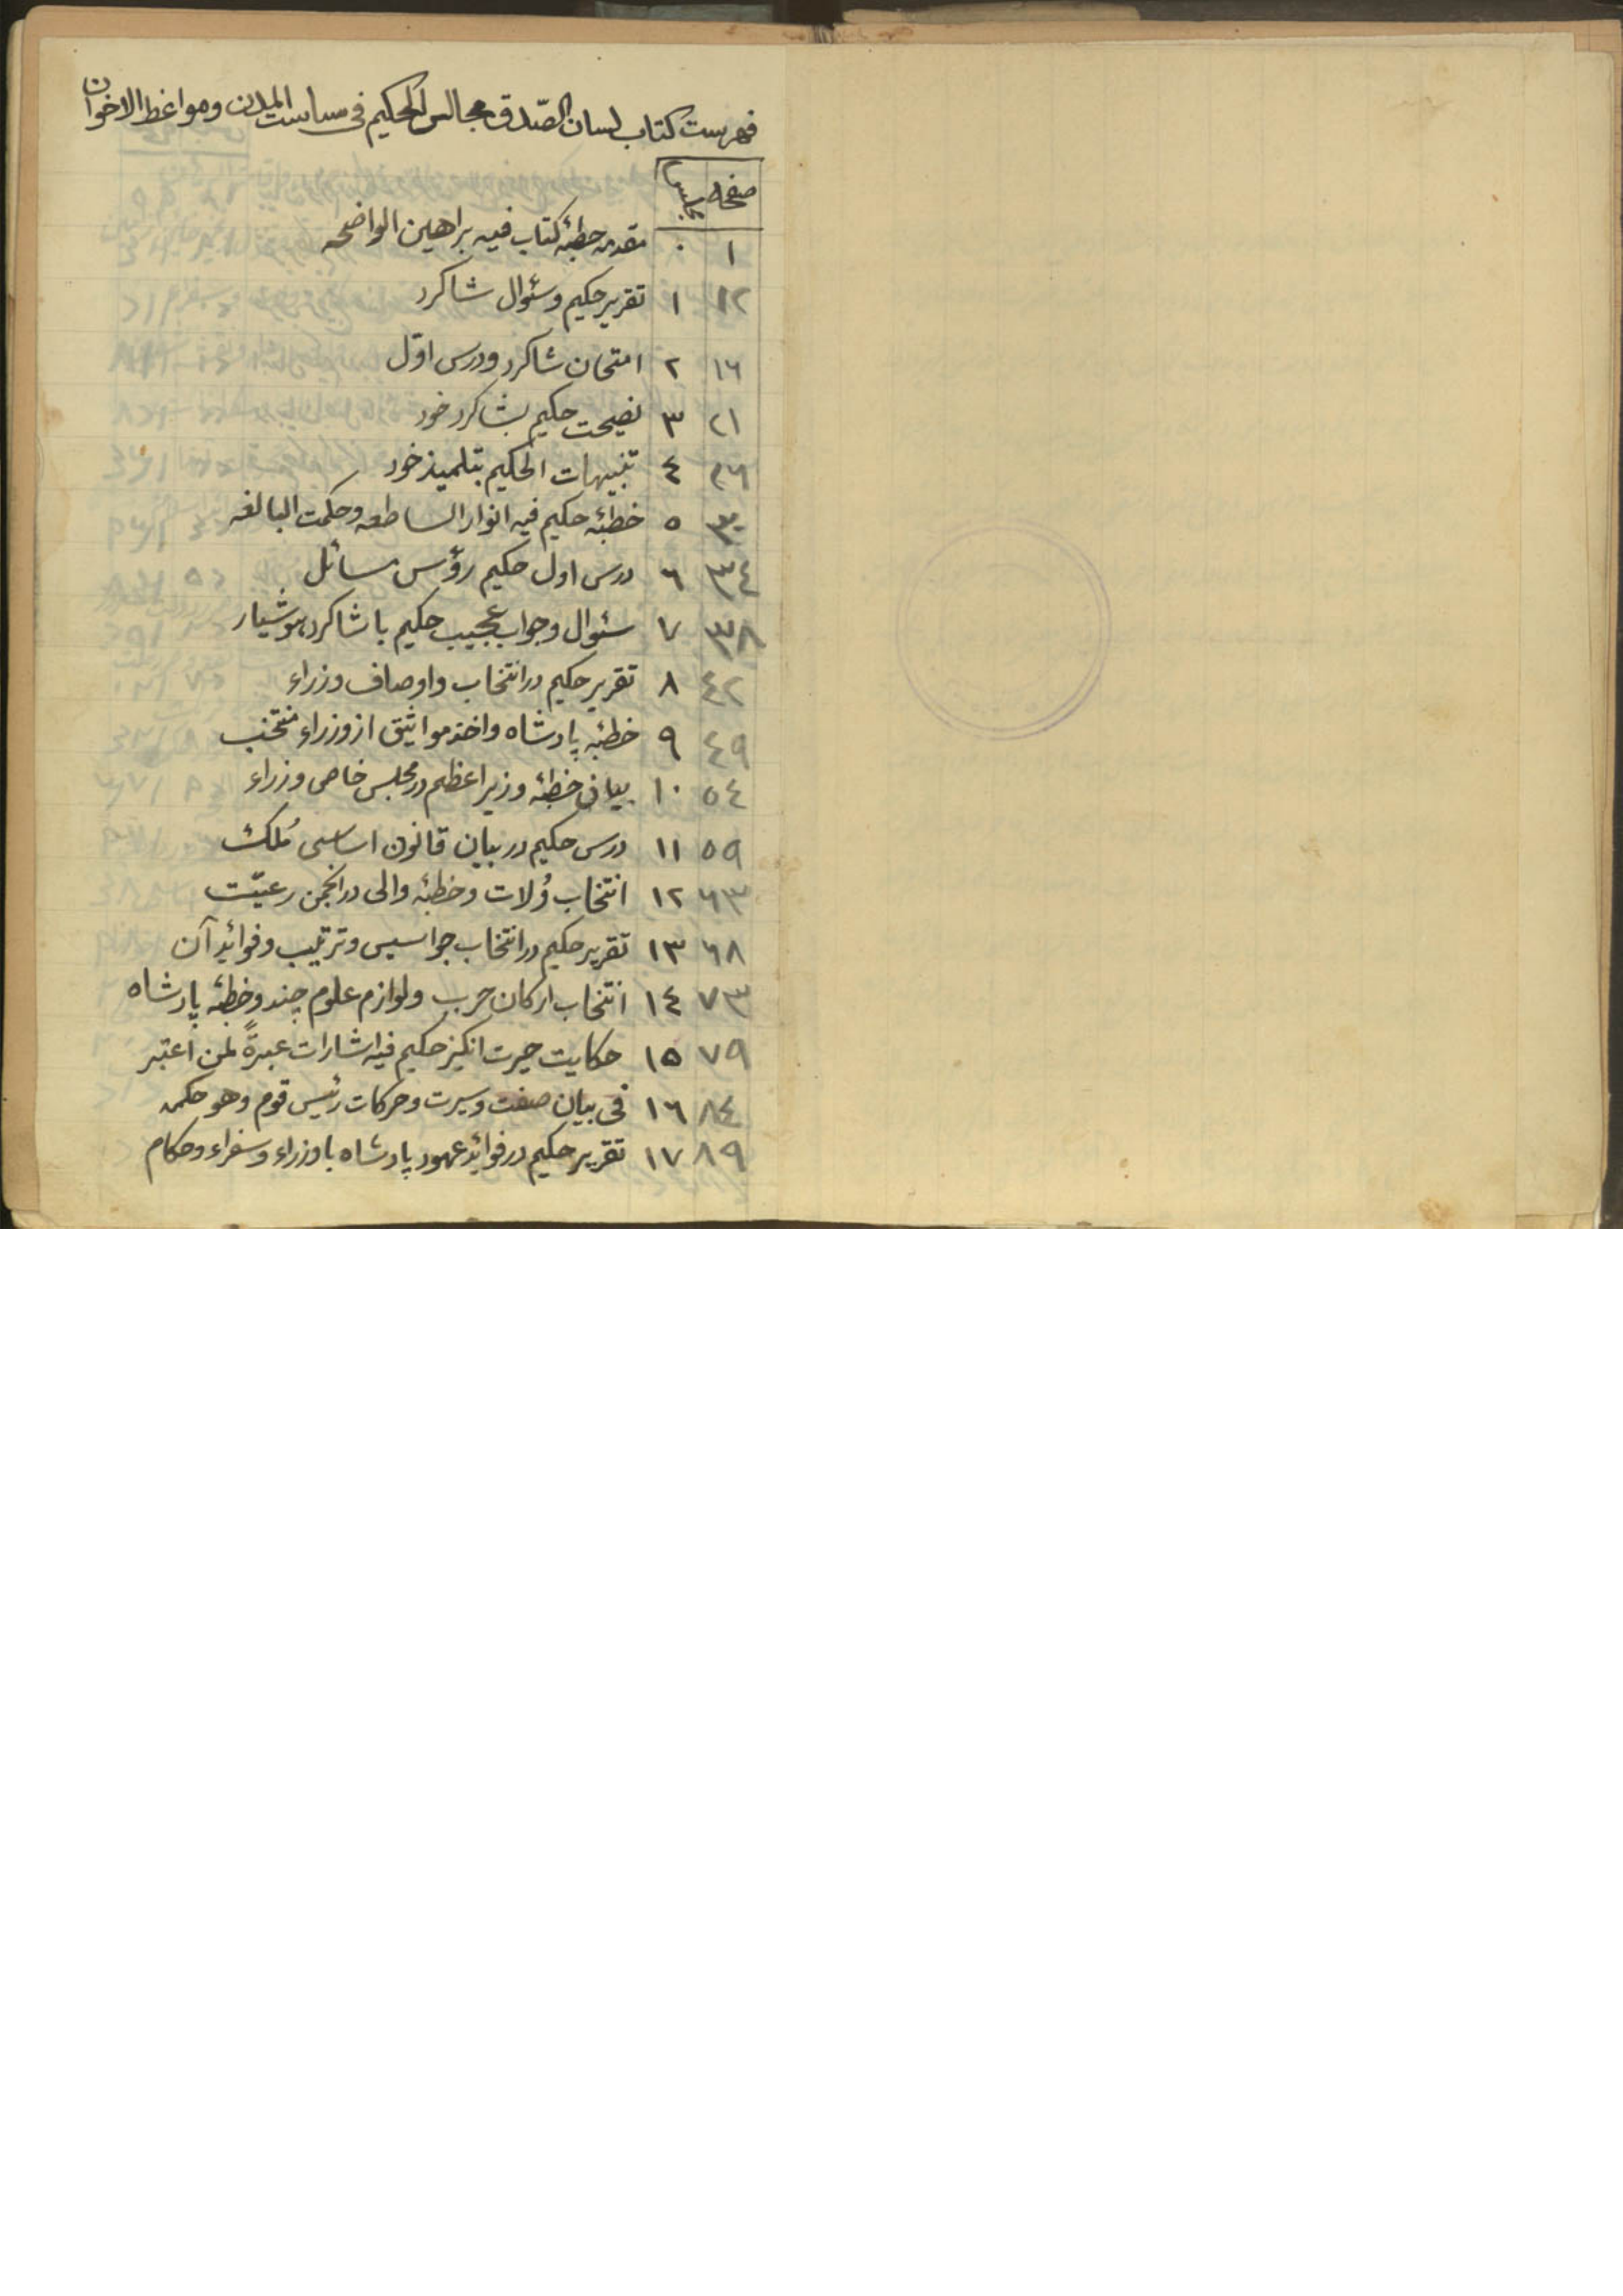 فهرست کتاب لسان الصّدق مجالس الحکیم فی سیاست المدن ومواعظ الاخوان
صفحه مجلس
١ ٠ مقدمه خطبهٔ کتاب فیه براهین الواضحه
١٢ ١ تقریر حکیم وسئوال شاکرد
١٦ ٢ امتحان شاکرد ودرس اوّل
٢١ ٣ نصیحت حکیم بشاکرد خود
٢٦ ٤ تنبیهات الحکیم بتلمیذ خود
٣٠ ٥ خطبهٔ حکیم فیه انوار الساطعه وحکمت البالغه
٣٤ ٦ درس اول حکیم رؤس مسائل
٣٨ ٧ سئوال وجواب عجیب حکیم با شاکرد هوشیار
٤٢ ٨ تقریر حکیم در انتخاب واوصاف وزراء
٤٩ ٩ خطبهٔ پادشاه واخذ مواثیق از وزراء منتخب
٥٤ ١٠ بیان خطبهٔ وزیر اعظم در مجلس خاص وزراء
٥٩ ١١ درس حکیم در بیان قانون اساسی مُلک
٦٣ ١٢ انتخاب وُلات وخطبهٔ والی در انجمن رعیّت
٦٨ ١٣ تقریر حکیم در انتخاب جواسیس وترتیب وفوائد آن
٧٣ ١٤ انتخاب ارکان حرب ولوازم علوم جند وخطبهٔ پادشاه
٧٩ ١٥ حکایت حیرت انکیز حکیم فیه اشارات عبرةً لمن اعتبر
٨٤ ١٦ فی بیان صفت وسیرت وحرکات رئیس قوم وهو حکمه
٨٩ ١٧ تقریر حکیم در فوائد عهود پادشاه با وزراء وسفراء وحکام